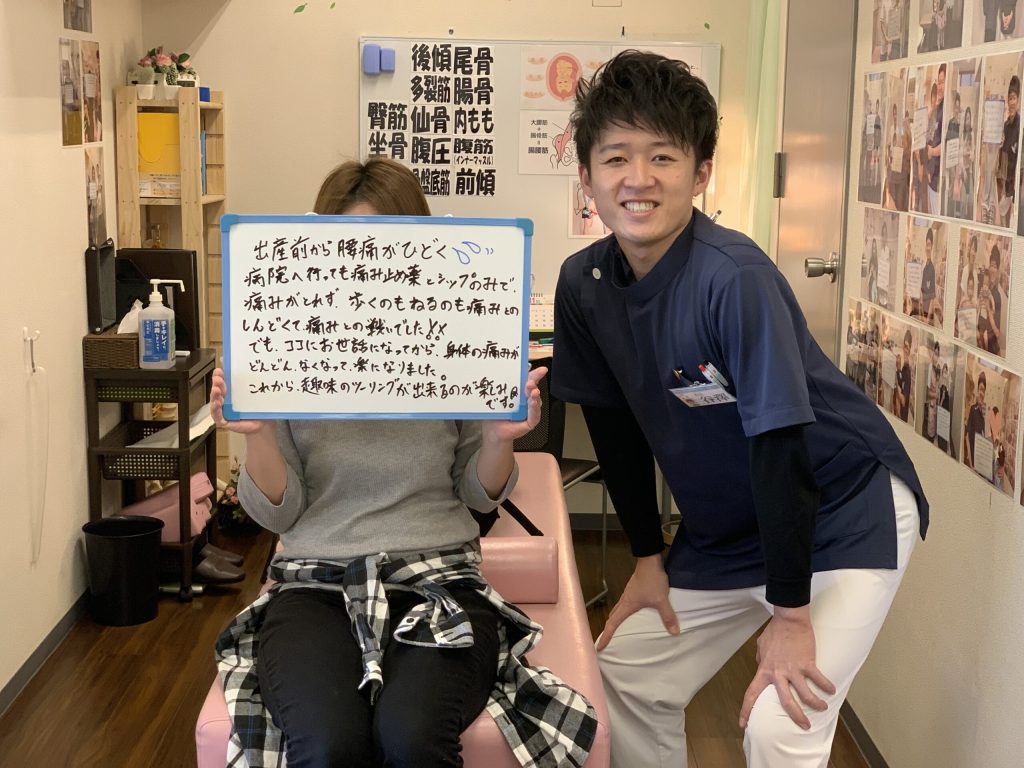 後傾 尾骨
多裂筋 腸骨
臀筋 仙骨 内もも
坐骨 腹圧 腹筋
(インナーマッスル)
盤底筋 前傾
大腰筋
+
腸骨筋
腸腰筋
出産前から腰痛がひどく
病院へ行っても痛み止め薬とシップのみで、
痛みがとれず、歩くのもねるのも痛みとの
しんどくて、痛みとの戦いでした!!
でも、ココにお世話になってから、身体の痛みが
どんどん、なくなって、楽になりました。
これから、趣味のツーリングが出来るのが楽しみ
です。
手・キレイに
消毒